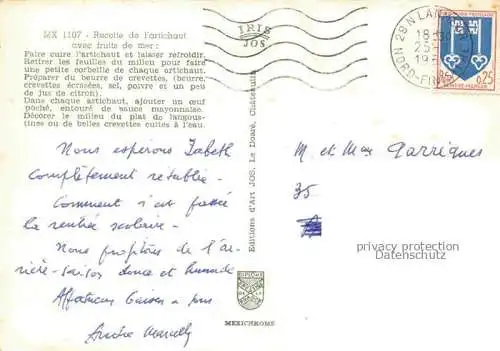 MX 1107 - Recette de l'artichaut
avec fruits de mer :
Faire cuire l'artichaut et laisser refroidir.
Retirer les feuilles du milieu pour faire
une petite corbeille de chaque artichaut.
Préparer du beurre de crevettes, (beurre,
crevettes écrasées, sel, poivre et un peu
de jus de citron).
Dans chaque artichaut, ajouter un œuf
poché, entouré de sauce mayonnaise.
Décorer le milieu du plat de langous-
tines ou de belles crevettes cuites à l'eau.
IRIS
JOS
18
25
19
NORD-FIN
0,25
Editions d'Art JOS. Le Doaré, Châteaulin
Nous esperons Zabeth
complètement rétablie -
Comment s'est passée
la rentrée scolaire -
Nous profitons de l'ar-
rière-saison douce et humide
Affectueux baisers à tous
André Marcelly
M et Mme Garrigues
35
privacy protection
Datenschutz
MEXICHROME